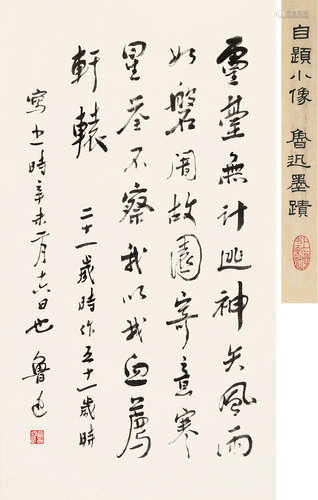 自題小像 魯迅墨蹟
靈臺無計逃神矢風雨
如磐闇故園寄意寒
星荃不察我以我血薦
軒轅 二十一歲時作五十一歲時
寫之時辛未二月十六日也 魯迅